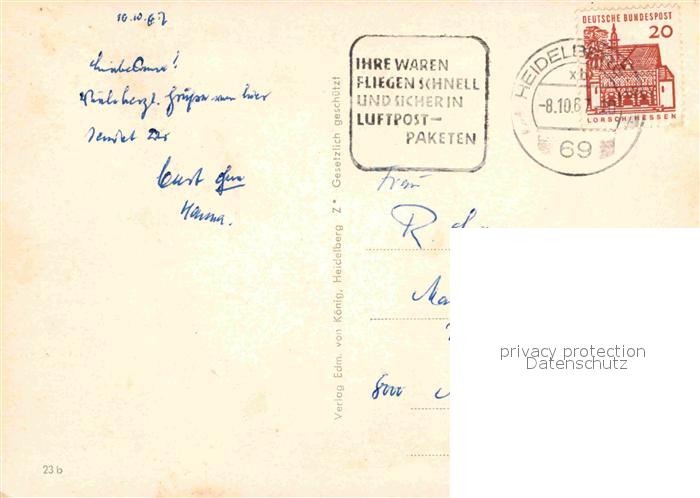 10.10.67
Liebe Oma!
Viele herzl. Grüße von hier
sendet Dir
Hanna.
23 b
Verlag Edm. von König, Heidelberg Z* Gesetzlich geschützt
IHRE WAREN
FLIEGEN SCHNELL
UND SICHER IN
LUFTPOST-
PAKETEN
HEIDELB
xb
-8.10.6
69
DEUTSCHE BUNDESPOST
20
LORSCH/HESSEN
Frau
R.
Ma
8000
privacy protection
Datenschutz